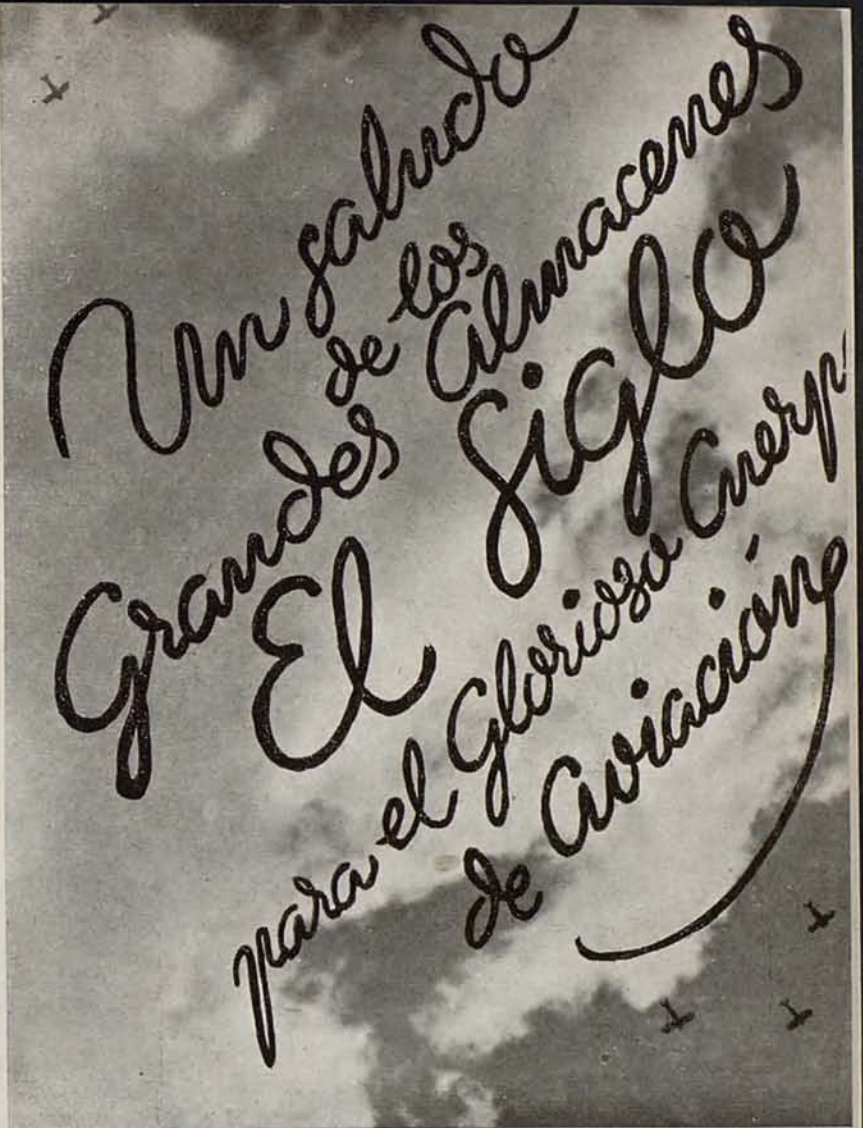 Un saludo
de los
Grandes Almacenes
El Siglo
para el Glorioso Cuerp
de Aviación